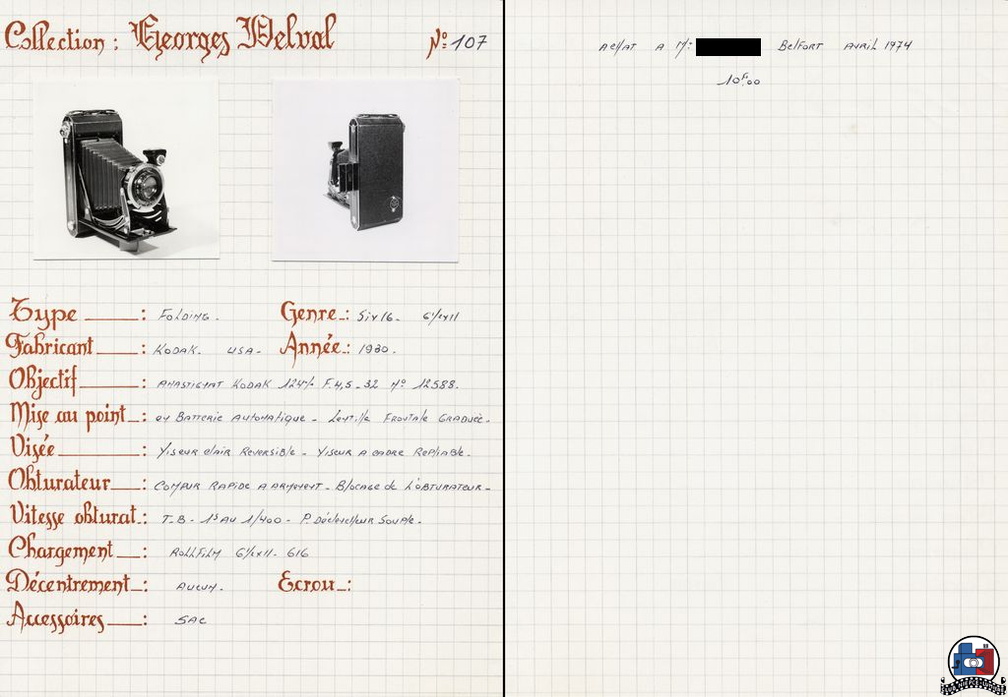 Collection : Georges Delval Nº 107
Type : Folding. Genre : Six 16. 6½x11
Fabricant : Kodak. USA. Année : 1930.
Objectif : Anastigmat Kodak 124% F.4,5-32 Nº 12588.
Mise au point : en Batterie Automatique - Lentille Frontale Graduée.
Visée : Viseur clair Reversible - Viseur a cadre Repliable.
Obturateur : Compur Rapide a armement - Blocage de L'obturateur -
Vitesse obturat : T.B - 1s Au 1/400 - P. Déclencheur Souple.
Chargement : Rollfilm 6½x11 - 616
Décentrement : Aucun. Ecrou :
Accessoires : SAC
Achat a Mr Belfort Avril 1974
10F00